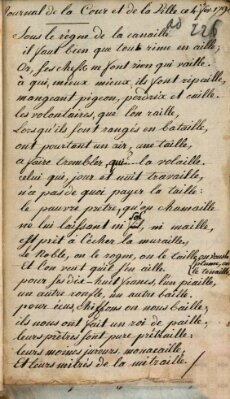 Journal de la Cour et de la Ville ce 4 1791
226
Sous le règne de la canaille
il faut bien que tout rime en aille;
Or, ses chefs n font rien qui vaille.
à qui, mieux mieux ils font ripaille,
mangeant pigeon, perdrix et caille.
les volontaires, que l'on raille,
Lorsqu'ils sont rangés en bataille,
ont pourtant un air, une taille,
a faire trembler la volaille.
celui qui, jour et nuit travaille,
n'a pas de quoi payer la taille:
le pauvre prêtre, qu'on chamaille
ne lui laissant ni sol, ni maille,
est prêt à lécher la muraille,
le Noble, on le rogne, on le taille
Et l'on veut qu'il s'en aille.
pour dix-huit francs, l'un piaille,
un autre ronfle, un autre baille.
pour écus chiffons on nous baille;
ils nous ont fait un roi de paille,
leurs prêtres sont pure prêtraille
leurs moines jureurs, monacaille,
Et leurs mitrés de la mitraille.